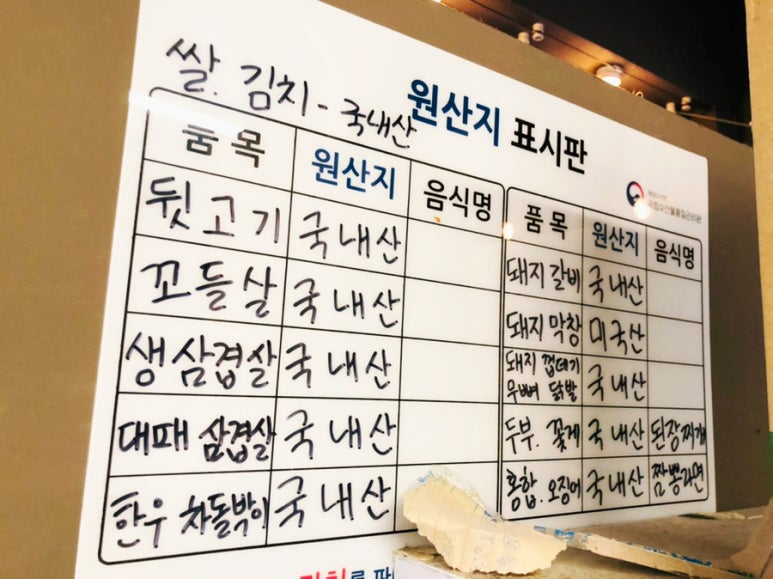 쌀. 김치 - 국내산
원산지 표시판
해양수산부
국립수산물품질관리원
품목 원산지 음식명
뒷고기 국내산
꼬들살 국내산
생삼겹살 국내산
대패 삼겹살 국내산
한우 차돌박이 국내산
품목 원산지 음식명
돼지갈비 국내산
돼지막창 미국산
돼지 껍데기
무뼈 닭발 국내산
두부. 꽃게 국내산 된장찌개
홍합. 오징어 국내산 짬뽕라면